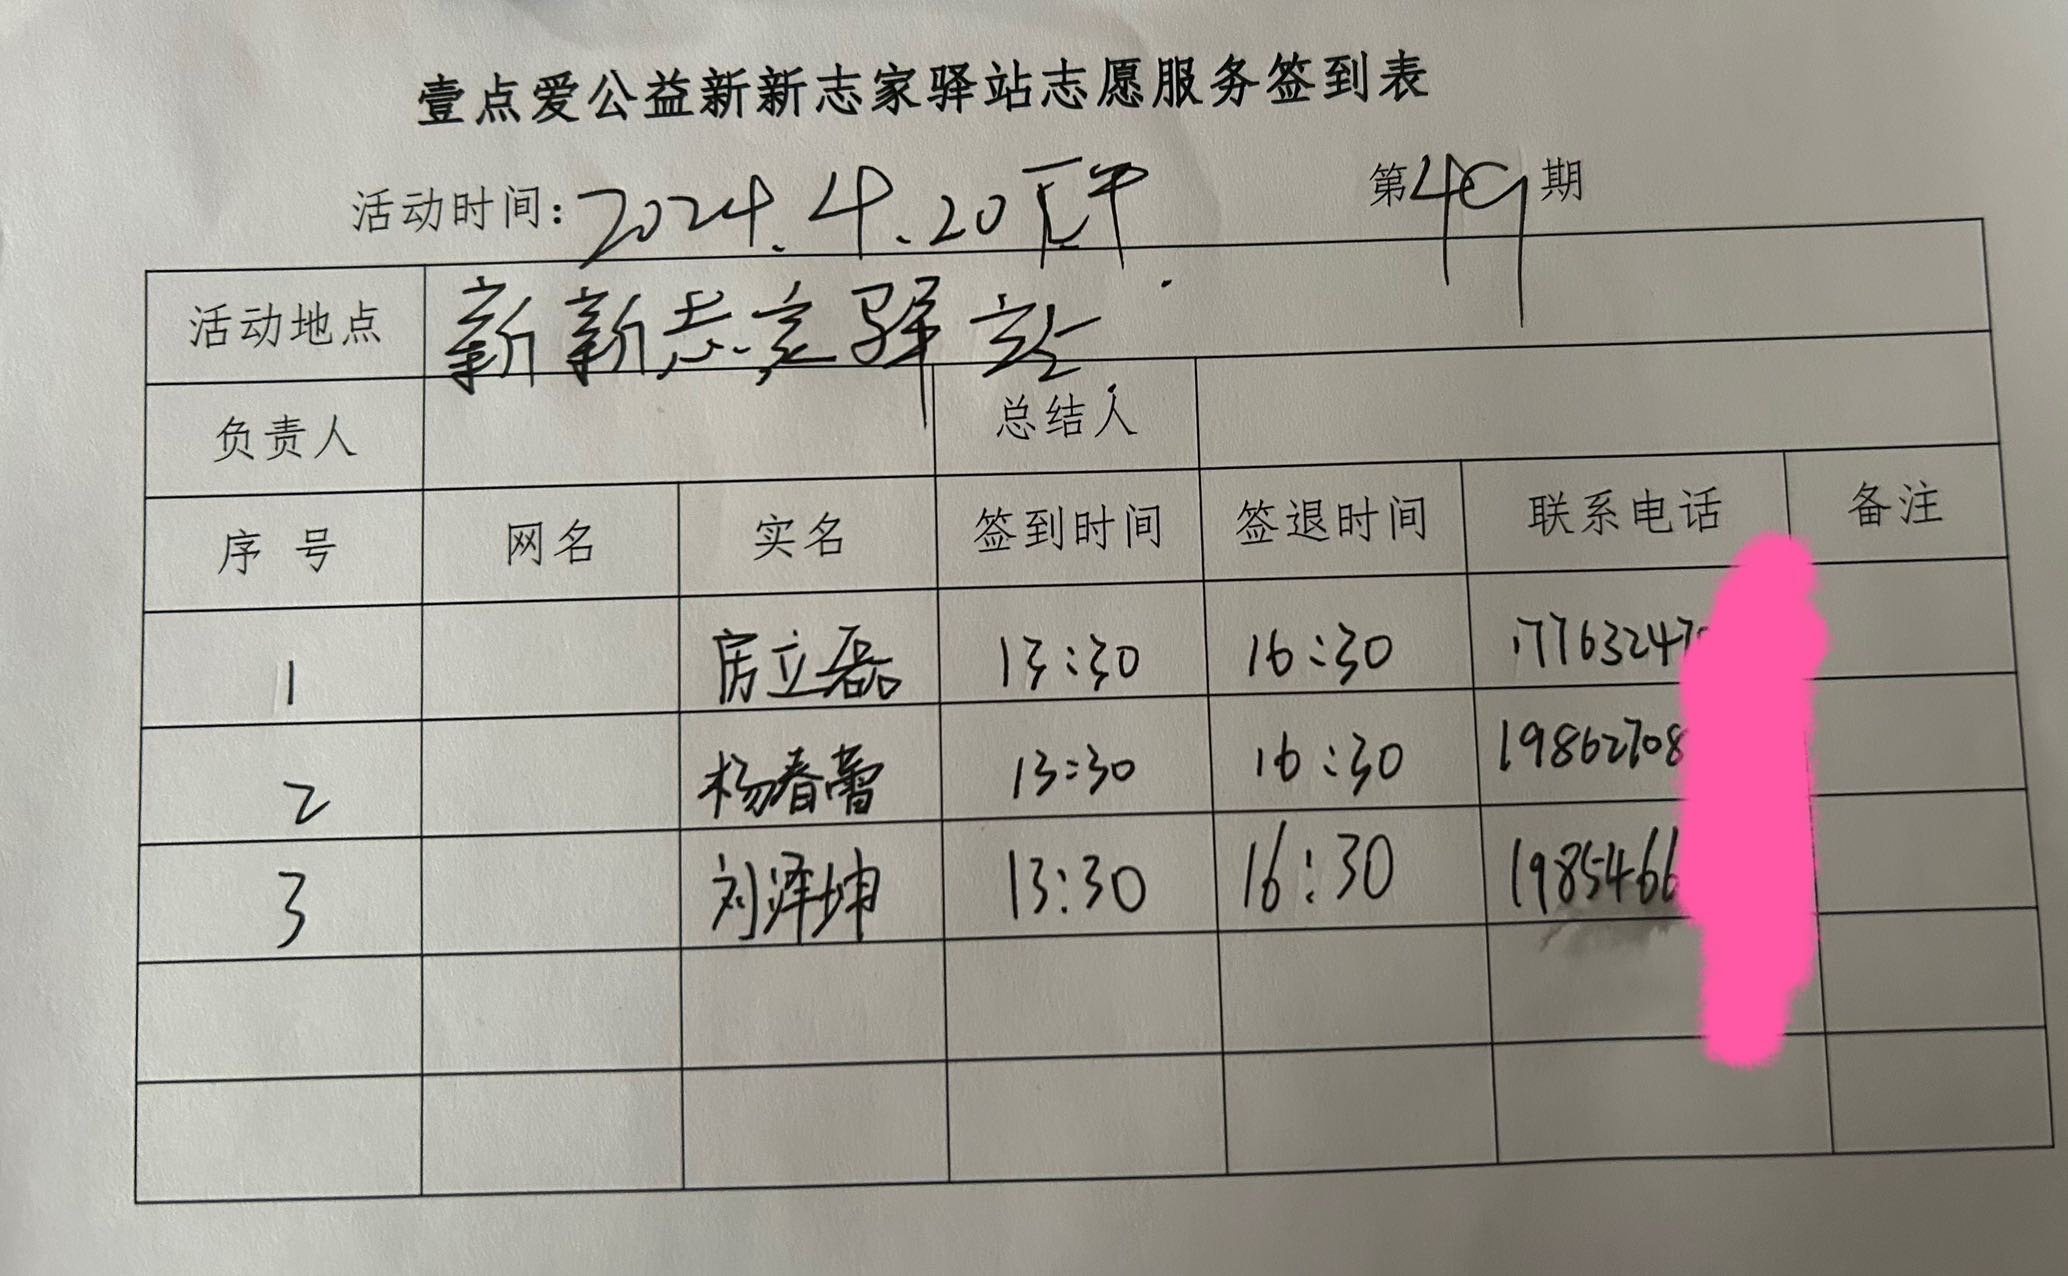 壹点爱公益新新志家驿站志愿服务签到表
活动时间：2024.4.20下午 第49期
活动地点 新新志家驿站
负责人 总结人
序号 网名 实名 签到时间 签退时间 联系电话 备注
1 房立磊 13:30 16:30 17763247
2 杨春蕾 13:30 16:30 19862708
3 刘泽坤 13:30 16:30 1985466